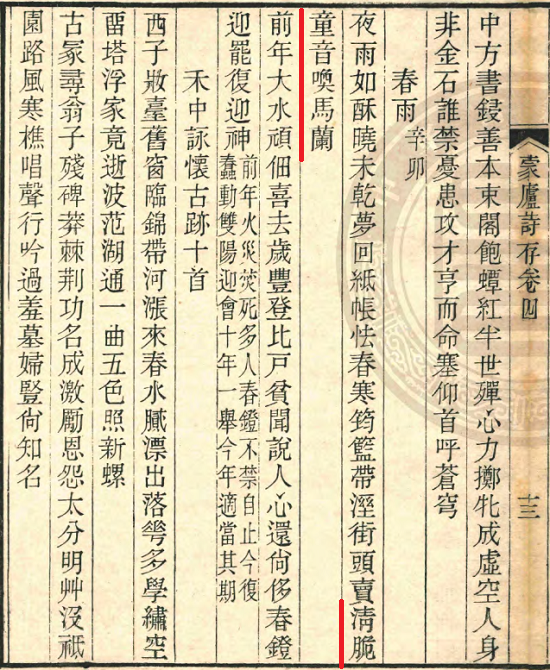 蒙廬詩存卷四
十三
中方書鋟善本束閣飽蟫紅半世殫心力擲牝成虛空人身
非金石誰禁憂患攻才亨而命塞仰首呼蒼穹
春雨 辛卯
夜雨如酥曉未乾夢回紙帳怯春寒筠籃帶溼街頭賣清脆
童音喚馬蘭
前年大水頑佃喜去歲豐登比戶貧聞說人心還尙侈春鐙
迎罷復迎神 前年火災焚死多人春鐙不禁自止今復
蠶動雙陽迎會十年一舉今年適當其期
禾中詠懷古跡十首
西子妝臺舊窗臨錦帶河漲來春水膩漂出落荂多學繡空
畱塔浮家竟逝波范湖通一曲五色照新螺
古冢尋翁子殘碑莽棘荆功名成激勵恩怨太分明艸沒祗
園路風寒樵唱聲行吟過羞墓婦豎尙知名